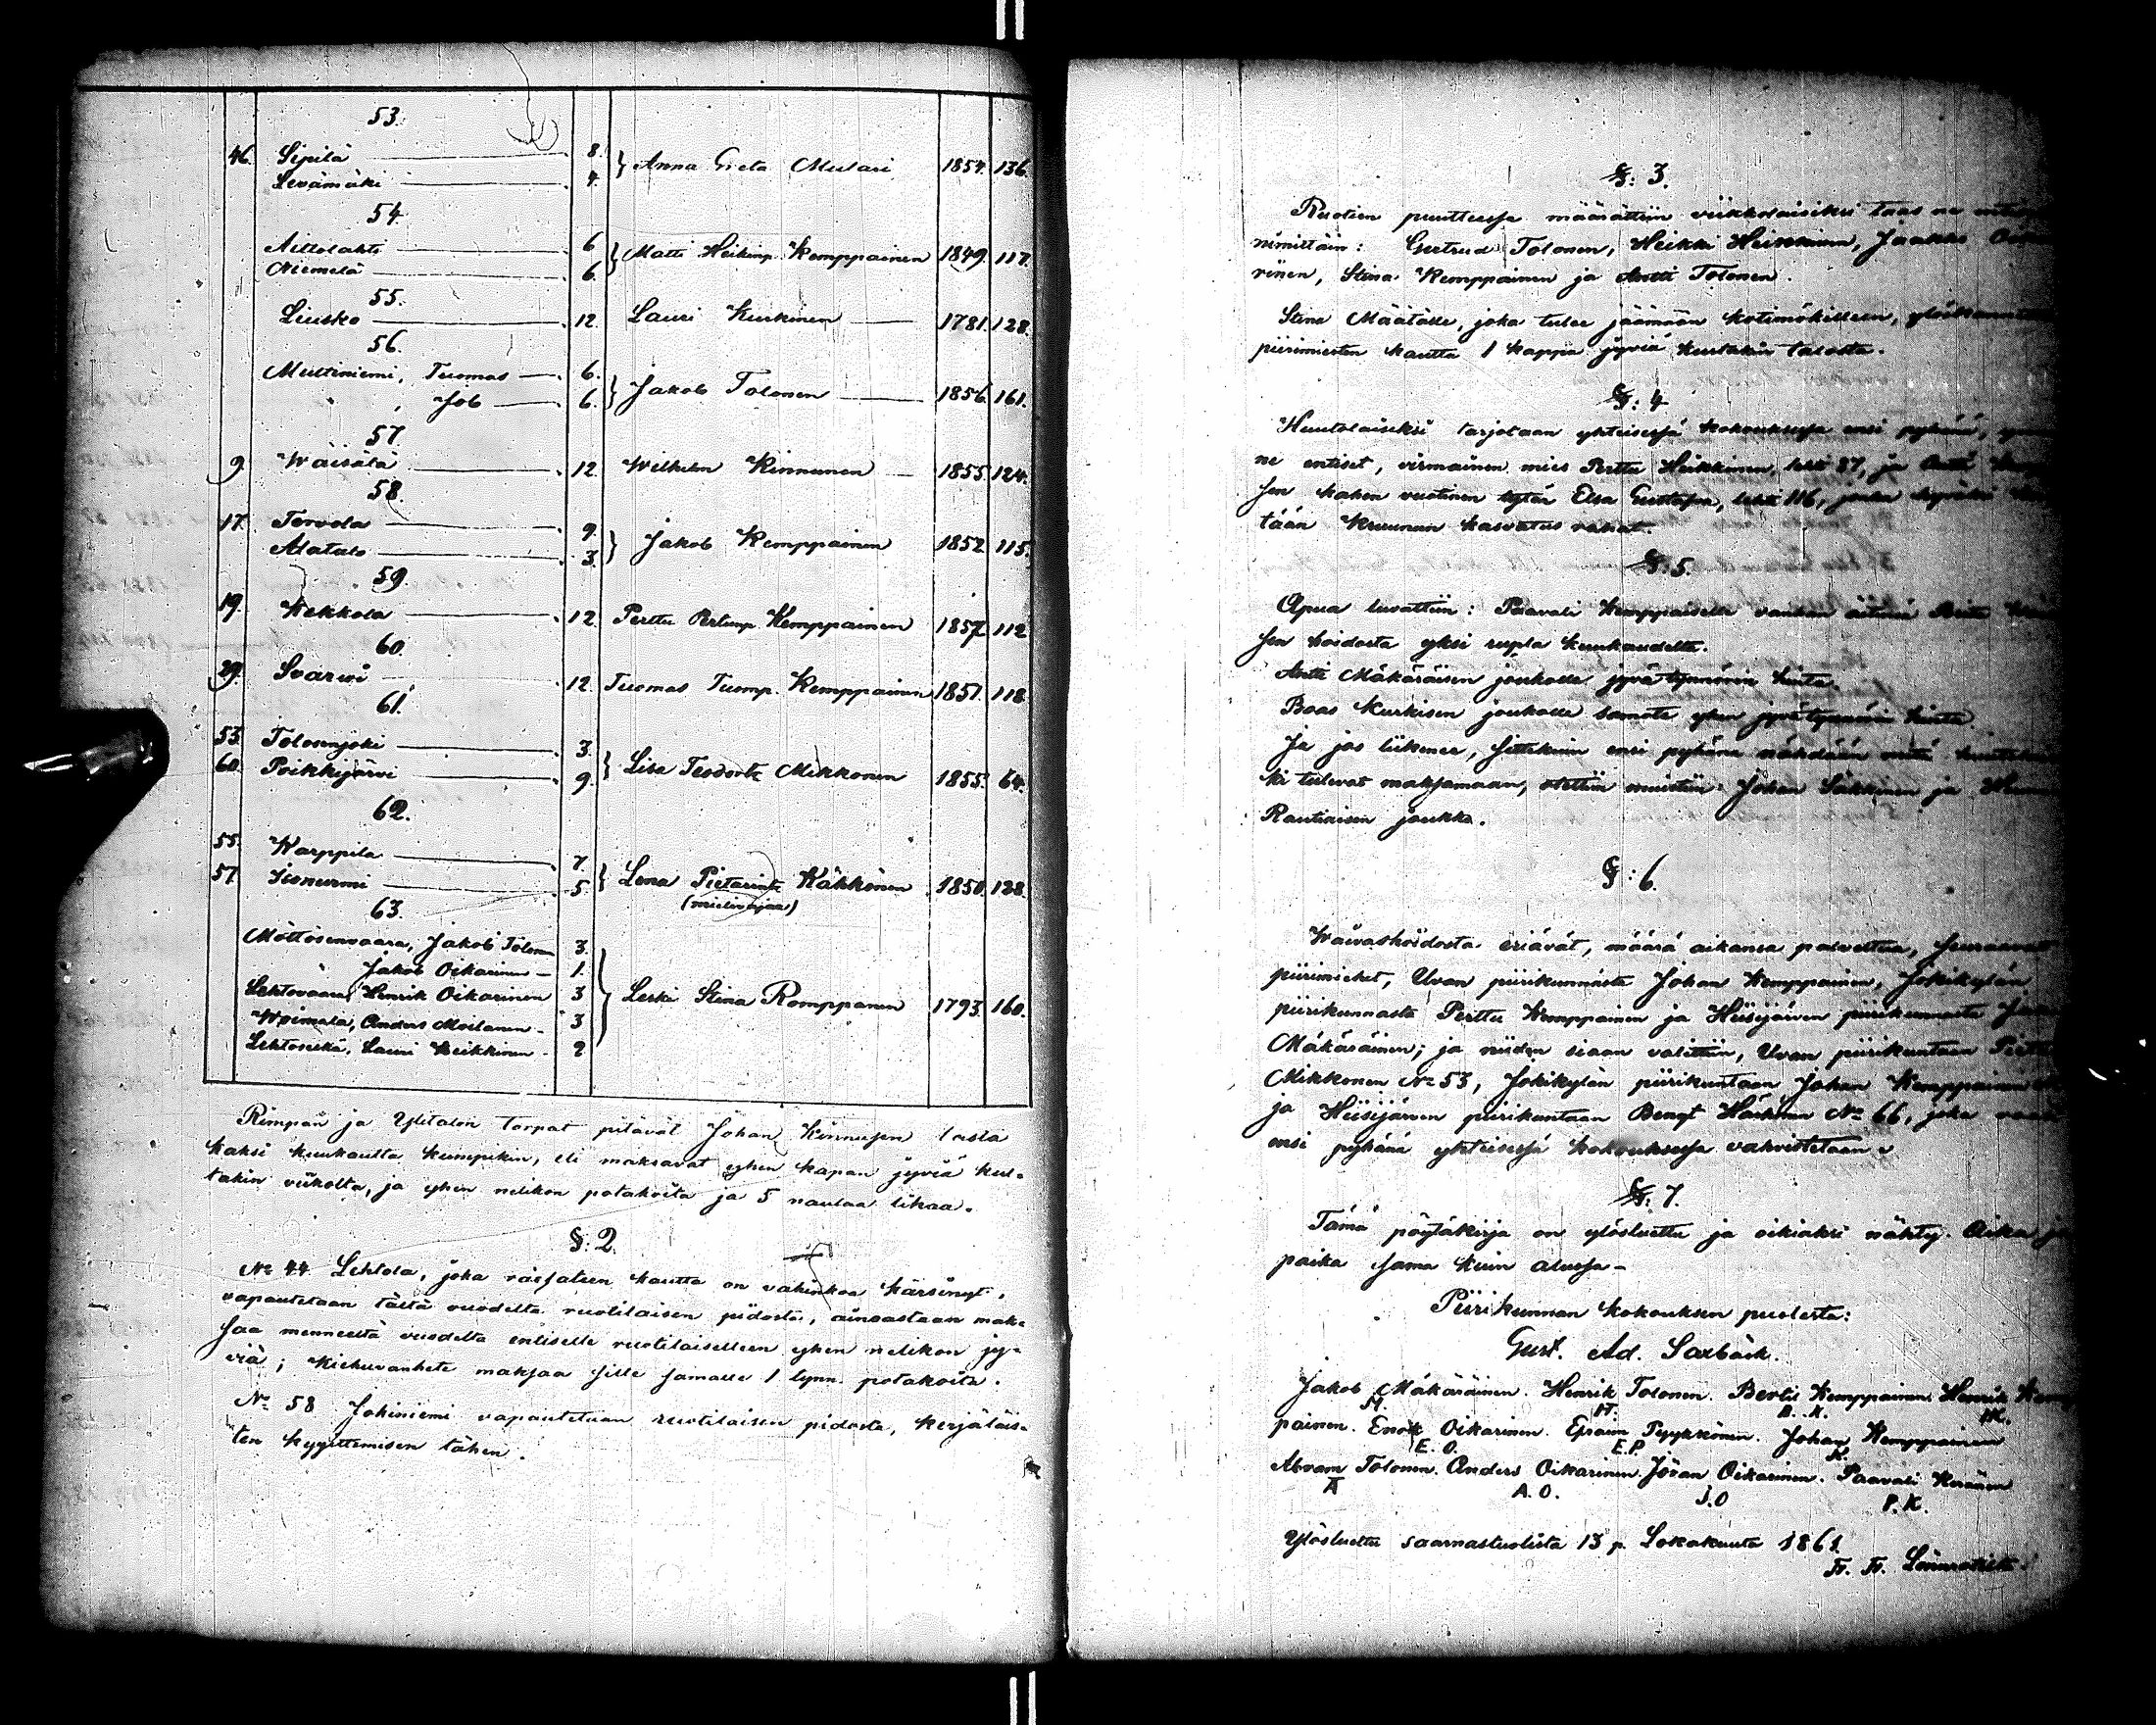 53.
46. Sipilä 8. } Anna Greta Mulari 1854. 136.
Levämäki 4.
54.
Aittolahti 6 } Matti Heikinp. Kemppainen 1849. 117.
Niemelä 6.
55.
Liusko 12. Lauri Kurkinen 1781. 128.
56.
Multiniemi, Tuomas 6. } Jakob Tolonen 1856. 161.
Job 6.
57.
9. Wäisälä 12 Wilhelm Kinnunen 1855. 124.
58.
17. Tervola 9. } Jakob Kemppainen 1852 115.
Alatalo 3.
59.
19. Kekkola 12. Perttu Pertunp. Kemppainen 1857 112
60.
29. Swarwi 12. Tuomas Tuomp. Kemppainen 1851. 118
61.
53. Tolosenjoki 3. } Lisa Teodorat. Mikkonen 1855. 64.
60. Poikkijärvi 9.
62.
55. Karppila 7. } Lena Pietarint. Käkkönen 1850. 128.
57. Iisonurmi 5. (mielivajaa)
63.
Möttösenvaara, Jakob Tolonen 3.
Jakob Oikarinen 1.
Lehtovaara, Henrik Oikarinen 3 } Leski Stina Romppanen 1793. 160.
Woimala, Anders Moilanen 3
Lehtoselkä, Lauri Heikkinen 2
Rimpan ja Ylitalon torpat pitävät Johan Kinnusen lasta
kaksi kuukautta kumpikin, eli maksavat yhen kapan jyviä kul-
takin viikolta, ja yhen nelikon potakoita ja 5 naulaa lihaa.
§: 2.
No 44 Lehtola, joka räessateen kautta on vahinkoa kärsinyt,
vapautetaan tältä vuodelta ruotilaisen pidosta, ainoastaan mak-
saa menneeltä vuodelta entiselle ruotilaiselleen yhen nelikon jy-
viä; Kiehuvanhete maksaa sille samalle 1 tynn. potakoita.
No 58 Jokiniemi vapautetaan ruotilaisen pidosta, kerjäläis-
ten kyyittemisen tähen.
§: 3.
Ruotien puutteessa määrättiin viikkolaisiksi taas ne
nimittäin: Gertrud Tolonen, Heikki Heikkinen, Jaakko
rinen, Stina Kemppainen ja Antti Tolonen.
Stina Määtälle, joka tulee jäämään kotimökilleen,
piirimiesten kautta 1 kappa jyviä kustakin talosta.
§: 4
Huutolaiseksi tarjotaan yhteisessä kokouksessa ensi pyhänä,
ne entiset, viimainen mies Perttu Heikkinen, lehti 87, ja
sen kahen vuotinen tytär Elsa Gustafva, lehti 116, jonka hyväksi
tään Kruunun kasvatus rahat.
§: 5.
Apua luvattiin: Paavali Kemppaiselle vanhan äitinsä
sen hoidosta yksi rupla kuukaudelta.
Antti Mäkäräisen joukolle jyvä tynnörin hinta.
Boas Kurkisen joukolle samate yhen jyvätynnörin hinta.
Ja jos liikenee, sittekuin ensi pyhänä nähdään mitä
ki tulevat maksamaan, otettiin muistiin Johan Säkkinen ja
Rautiaisen joukko.
§: 6.
Waivashoidosta eriävät, määrä aikansa palveltua, seuraavat
piirimiehet, Uvan piirikunnasta Johan Kemppainen, Jokikylän
piirikunnasta Perttu Kemppainen ja Hiisijärven piirikunnasta
Mäkäräinen; ja niiden siaan valittiin, Uvan piirikuntaan
Mikkonen No 53, Jokikylän piirikuntaan Johan Kemppainen
ja Hiisijärven piirikuntaan Bengt Härkönen No 66, joka
ensi pyhänä yhteisessä kokouksessa vahvistetaan.
§: 7.
Tämä pöytäkirja on ylösluettu ja oikiaksi nähty. Aika ja
paika sama kuin alussa.
Piirikunnan kokouksen puolesta:
Gust. Ad. Saxbäck.
Jakob Mäkäräinen. Henrik Tolonen. Bertil Kemppainen. Henrik Kemp
M. H. B. K. HK.
painen. Enok Oikarinen. Efraim Pyykkönen. Johan Kemppainen
E. O. E.P. K.
Abram Tolonen. Anders Oikarinen. Jöran Oikarinen. Paavali Keränen
A A. O. J.O P. K.
Ylösluettu saarnastuolista 13 p. Lokakuuta 1861.